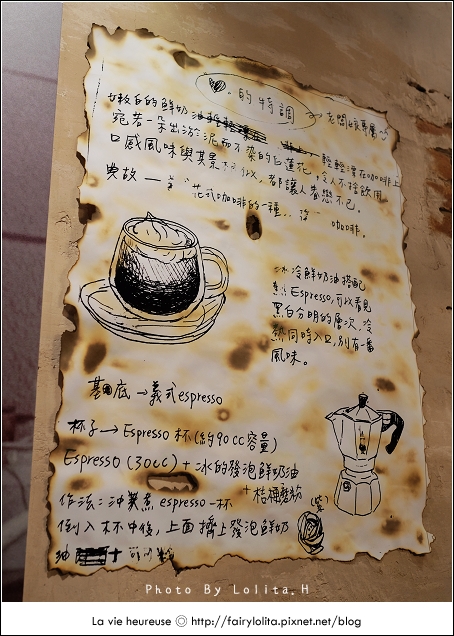 ♡的特調 ～老闆娘專屬～
嫩白的鮮奶油輕輕漂在咖啡上
宛若一朵出淤泥而不染的白蓮花,令人不捨飲用
口感風味與其景
都讓人眷戀不已。
典故—
花式咖啡的一種
咖啡。
冰冷鮮奶油搭配
Espresso,可以看見
黑白分明的層次,冷
熱同時入口,別有一番
風味。
基底→義式espresso
杯子→Espresso杯(約90cc容量)
Espresso(30cc)+冰的發泡鮮奶油
+桔梗蘑粉
作法:沖煮espresso一杯
(紫)
倒入杯中後,上面擠上發泡鮮奶
油
Photo By Lolita.H
La vie heureuse ◎ http://fairylolita.pixnet.net/blog